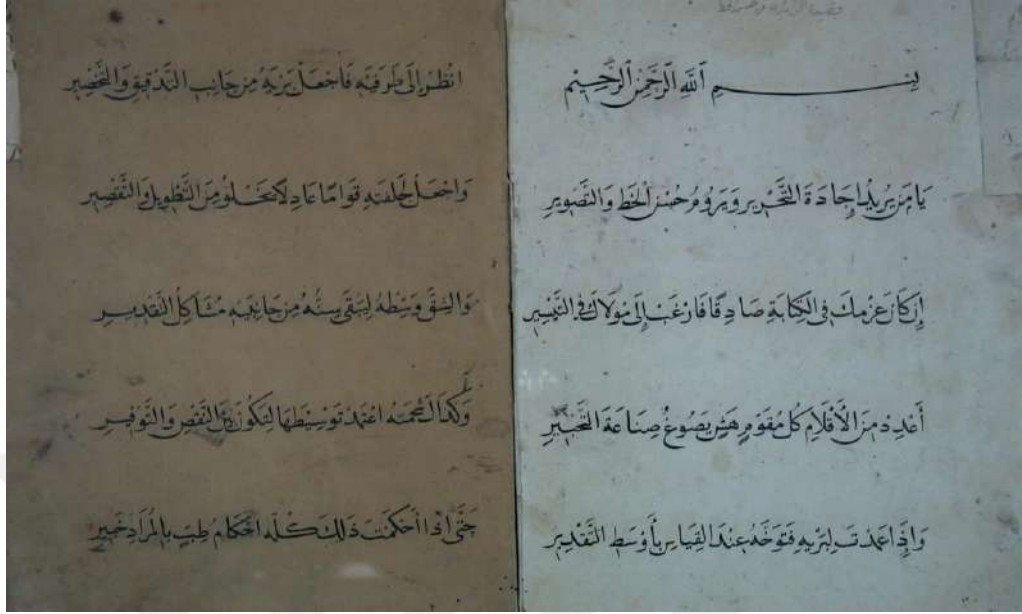 بِسْمِ ٱللَّهِ ٱلرَّحْمٰنِ ٱلرَّحِيْمِ
يَا مَن يُرِيدُ إِجَادَةَ التَّحْرِيرِ وَيَرُومُ حُسْنَ الْخَطِّ وَالتَّصْوِيرِ
إِن كَانَ عَزْمُكَ فِى الْكِتَابَةِ صَادِقًا فَارْغَبْ إِلَى مَوْلَاكَ فِى التَّيْسِيرِ
أَعْدِدْ مِنَ الْأَقْلَامِ كُلَّ مُقَوَّمٍ هَشٍّ يَصُوغُ صِنَاعَةَ التَّحْبِيرِ
وَإِذَا عَمَدْتَ لِبَرْيِهِ فَتَوَخَّهُ عِنْدَ الْقِيَاسِ بِأَوْسَطِ التَّقْدِيرِ
انْظُرْ إِلَى طَرَفَيْهِ فَاجْعَلْ بَرْيَهُ مِنْ جَانِبِ التَّدْقِيقِ وَالتَّخْضِيرِ
وَاجْعَلْ لِجِلْفَتِهِ قَوَامًا عَادِلًا يَخْلُو مِنَ التَّطْوِيلِ وَالتَّقْصِيرِ
وَالشَّقَّ وَسِّطْهُ لِيَبْقَى سِنُّهُ مِنْ جَانِبَيْهِ مُشَاكِلَ التَّقْدِيرِ
وَكَذَاكَ شَحْمَتَهُ اعْتَمِدْ تَوْسِيطَهَا لِتَكُونَ بَيْنَ النَّقْصِ وَالتَّوْفِيرِ
حَتَّى إِذَا أَحْكَمْتَ ذَلِكَ كُلَّهُ إِحْكَامَ طِبٍّ بِالْمُرَادِ خَبِيرِ